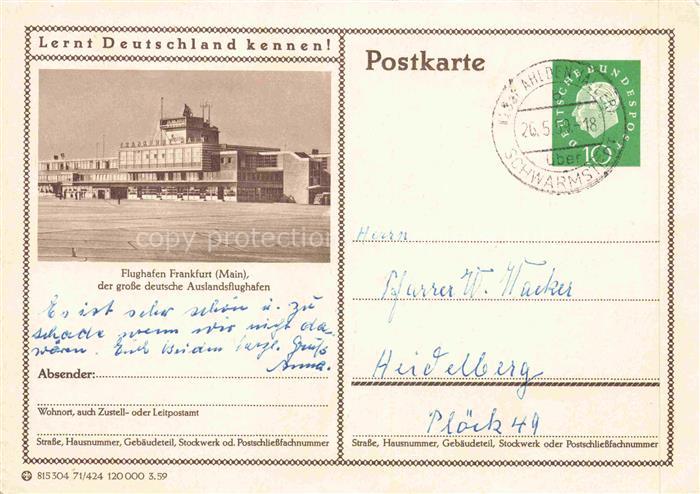 Lernt Deutschland kennen!
Flughafen Frankfurt (Main),
der große deutsche Auslandsflughafen
Es ist sehr schön u. zu
schade wenn wir nicht da-
wären. Euch beiden herzl. Gruß
Anna.
Absender:
Wohnort, auch Zustell- oder Leitpostamt
Straße, Hausnummer, Gebäudeteil, Stockwerk od. Postschließfachnummer
815304 71/424 120000 3.59
Postkarte
AHLDEN (ALLER)
26.5.59.-18
über
SCHWARMSTEDT
DEUTSCHE BUNDESPOST
10
Herrn
Pfarrer W. Wacker
Heidelberg
Plöck 49
Straße, Hausnummer, Gebäudeteil, Stockwerk oder Postschließfachnummer
copy protection